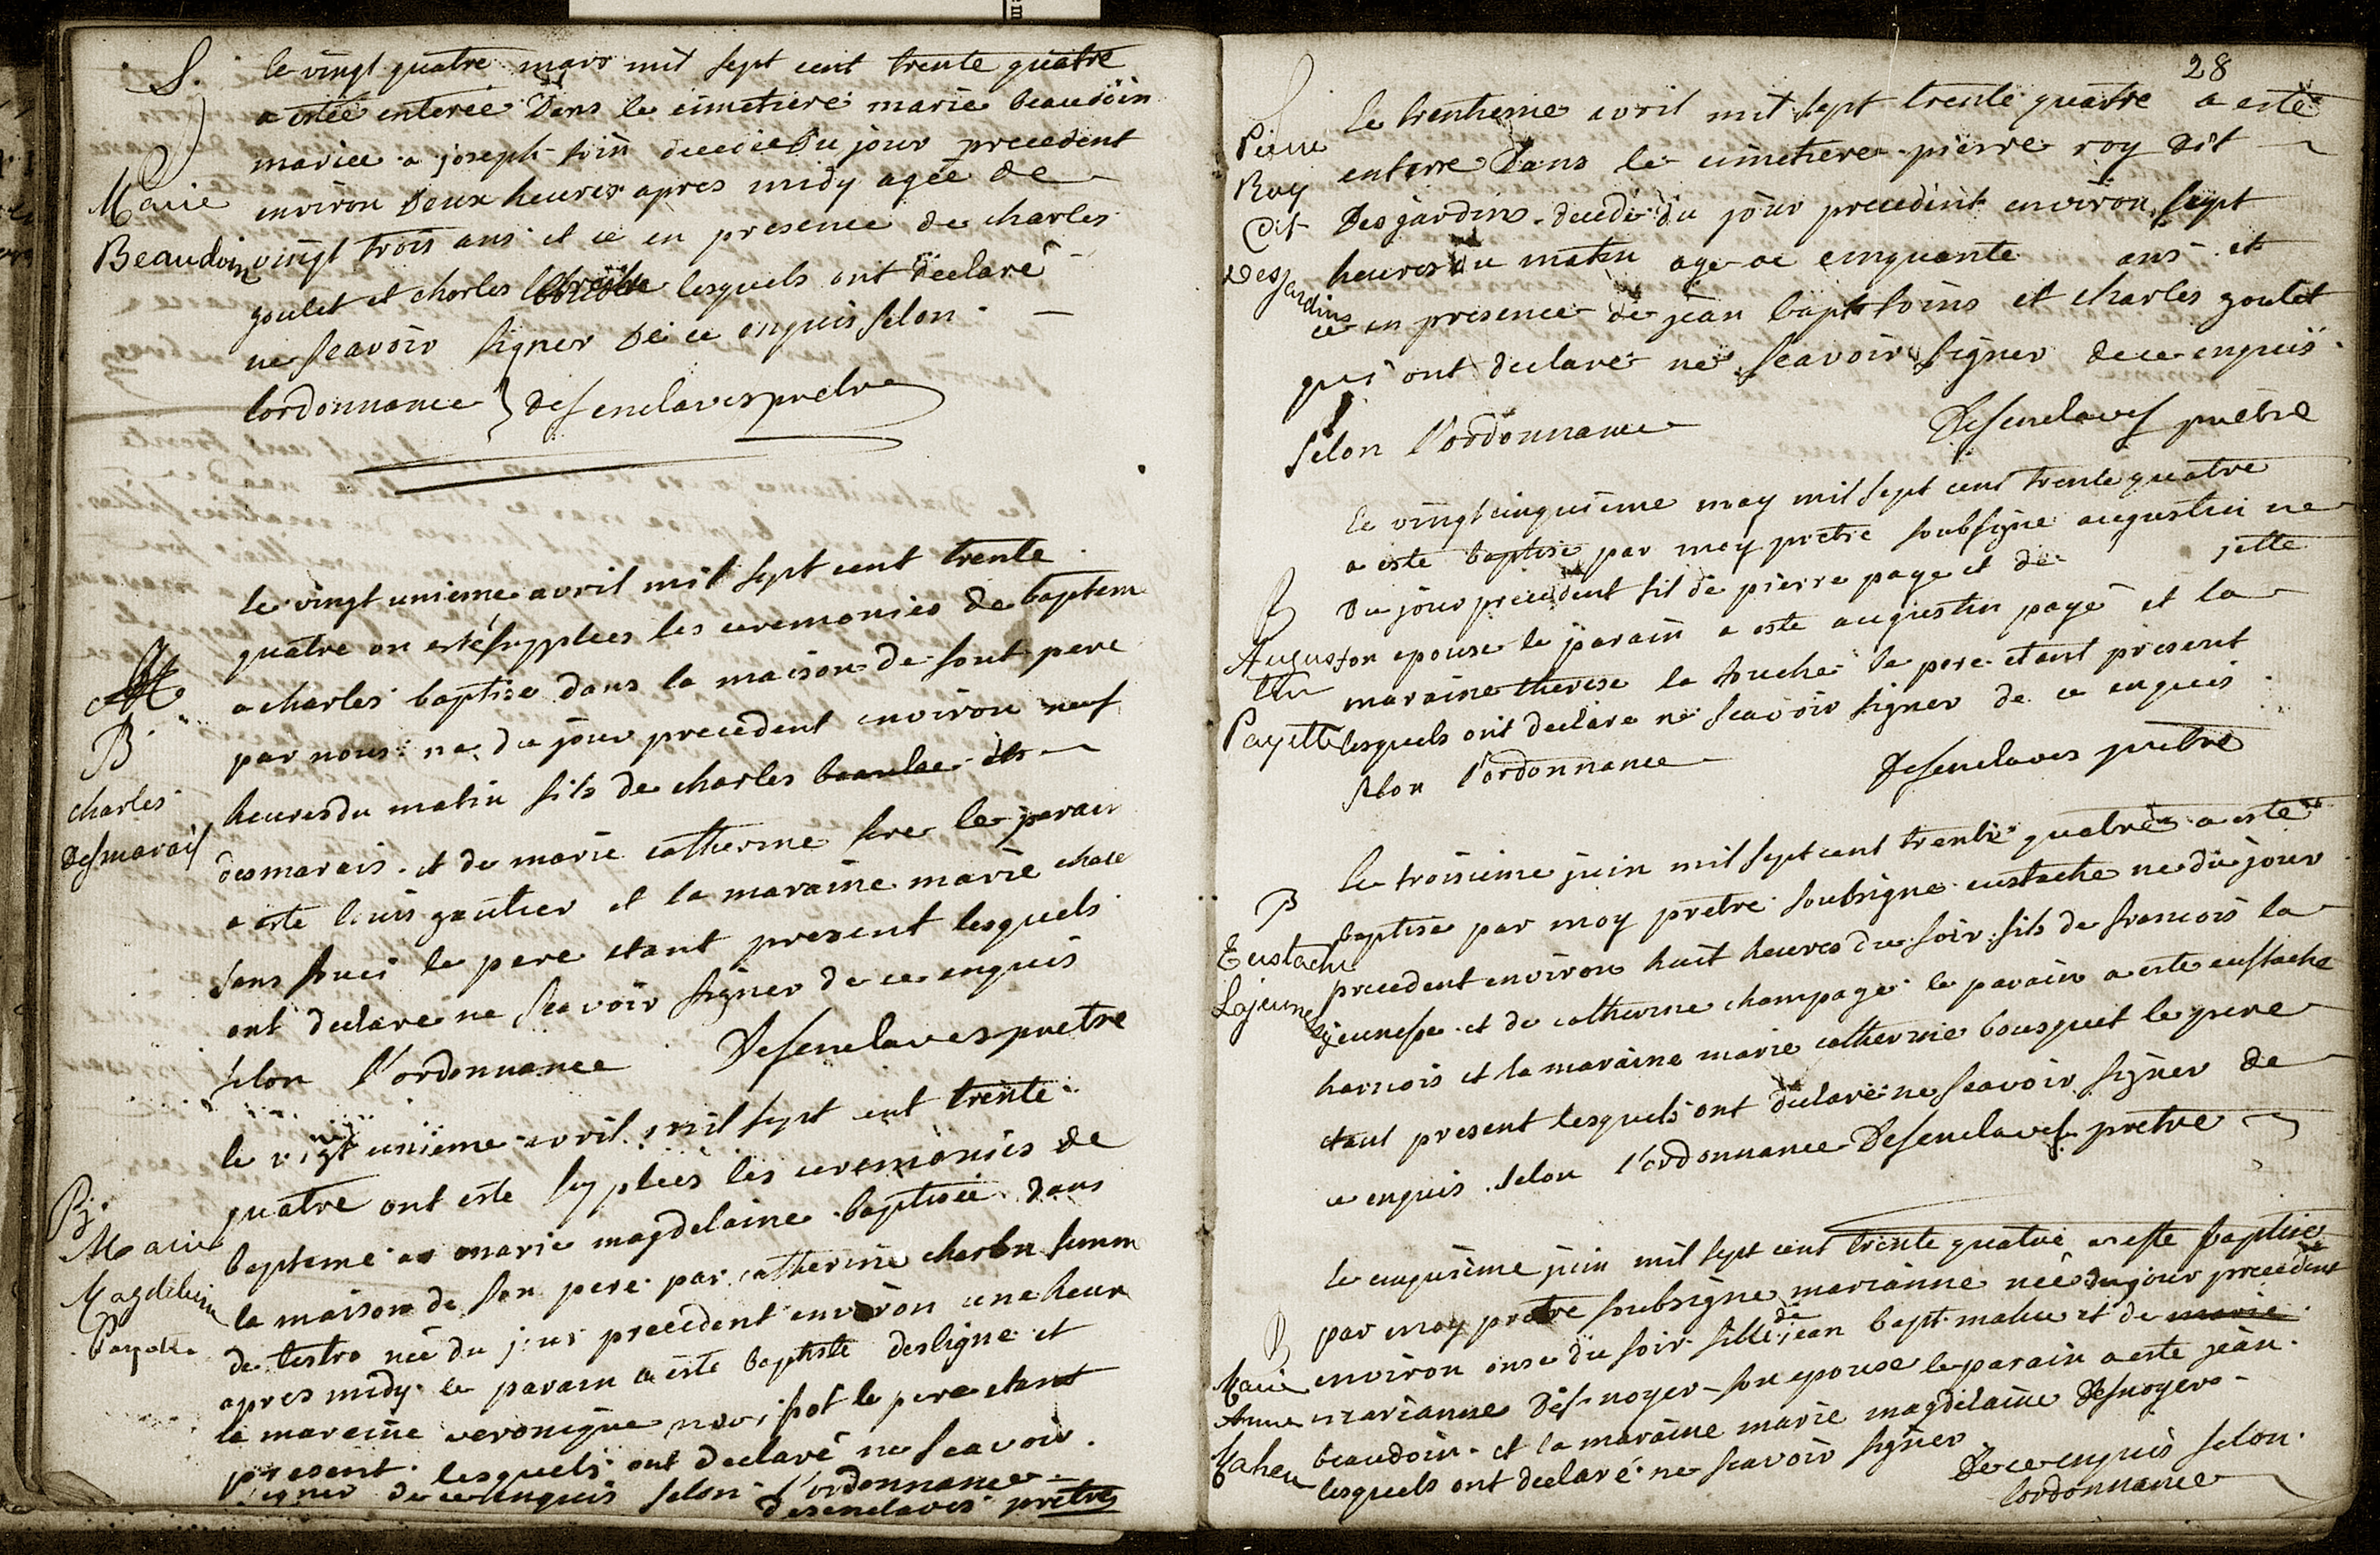 S.
Marie
Beaudoin
le vingt quatre mars mil sept cent trente quatre
a estée enterée Dans le cimetiere marie beaudoin
mariee a joseph foin decedee Du jour precedent
environ Deux heures apres midy agée de
vingt trois ans et ce en presence de charles
goulet et charles lesquels ont declaré
ne scavoir signer De ce enquis selon
lordonnance desenclaves pretre
B
charles
Desmarais
le vingt unieme avril mil sept cent trente
quatre on esté supplees les ceremonies de baptem
a charles baptise dans la maison de sont pere
par nous ne du jour precedent environ neuf
heures du matin fils de charles beaulac dts
desmarais et de marie catherine fere le parain
a este louis gautier et la maraine marie chate
sans souci le pere etant present lesquels
ont declare ne scavoir signer de ce enquis
selon l'ordonnance Desenclaves pretre
B.
Marie
Magdeleine
Payette
le vigt unieme avril mil sept cent trente
quatre ont este supplees les ceremonies de
bapteme a marie magdelaine baptisée dans
la maison de son pere par catherine charlon femm
de lestro née du jour precedent environ une heur
apres midy le parain a este baptiste desligne et
la mareine veronique le pere etant
present lesquels ont declaré ne scavoir
signer de ce enquis selon l'ordonnance
desenclaves pretre
28
Pierre
Roy
Dit
Desjardins
Le trentieme avril mil sept trente quatre a esté
enterre Dans le cimetiere pierre roy dit
Desjardins decedé du jour precedent environ sept
heures du matin age de cinquante ans et
ce en presence de jean bapt foins et charles goulet
qui ont declaré ne scavoir signer de ce enquis
selon l'ordonnance Desenclaves pretre
B
Augus
tin
Payette
Le vingt cinquieme may mil sept cent trente quatre
a este baptise par moy pretre soubsigne augustin ne
Du jour precedent fil de pierre page et de jette
son epouse le parain a este augustin page et la
maraine therese la touche le pere etant present
lesquels ont declare ne scavoir signer de ce enquis
selon l'ordonnance Desenclaves pretre
B
Eustache
Lajeunesse
Le troisieme juin mil sept cent trente quatre a este
baptise par moy pretre soubsigne eustache ne du jour
precedent environ huit heures du soir fils de francois la
jeunesse et de catherine champage le parain a este eustache
harnois et la maraine marie catherine bousquet le pere
etant present lesquels ont declaré ne scavoir signer de
ce enquis selon l'ordonnance Desenclaves pretre
B
Marie
Anne
Maheu
le cinquieme juin mil sept cent trente quatre a este baptisée
par moy pretre soubsigne marianne née du jour precedent
environ onse du soir fille de jean bapt maheu et de marie
marianne Desnoyer son epouse le parain a este jean
beaudoin et la maraine marie magdelaine Desnoyers
lesquels ont declaré ne scavoir signer
De ce enquis selon
lordonnance